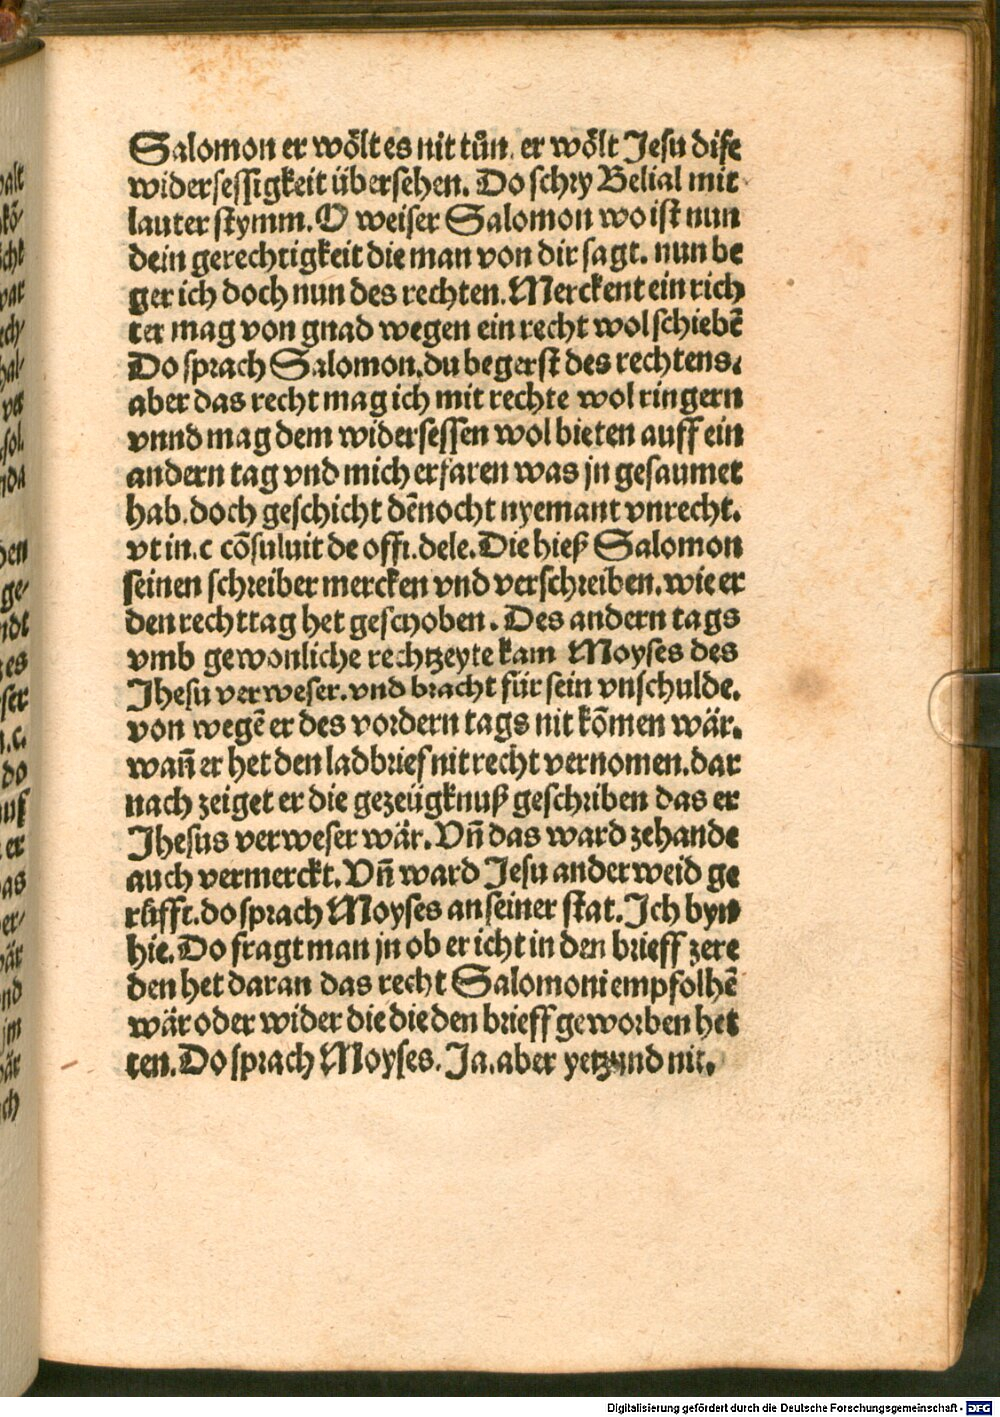 Salomon er woͤlt es nit tuͦn. er woͤlt Jesu dise
widersessigkeit übersehen. Do schry Belial mit
lauter stymm. O weiser Salomon wo ist nun
dein gerechtigkeit die man von dir sagt. nun be
ger ich doch nun des rechten. Merckent ein rich
ter mag von gnad wegen ein recht wol schiebē
Do sprach Salomon. du begerst des rechtens.
aber das recht mag ich mit rechte wol ringern
vnnd mag dem widersessen wol bieten auff ein
andern tag vnd mich erfaren was jn gesaumet
hab. doch geschicht dēnocht nyemant vnrecht.
vt in. c cōsuluit de offi. dele. Die hieß Salomon
seinen schreiber mercken vnd verschreiben. wie er
den rechttag het geschoben. Des andern tags
vmb gewonliche rechtzeyte kam Moyses des
Jhesu verweser. vnd bracht für sein vnschulde.
von wegē er des vordern tags nit kōmen wär.
wañ er het den ladbrief nit recht vernomen. dar
nach zeiget er die gezeügknuß geschriben das er
Jhesus verweser wär. Vñ das ward zehande
auch vermerckt. Vñ ward Jesu anderweid ge
ruͤfft. do sprach Moyses an seiner stat. Ich byn
hie. Do fragt man jn ob er icht in den brieff zere
den het daran das recht Salomoni empfolhē
wär oder wider die die den brieff geworben het
ten. Do sprach Moyses. Ja. aber yetzund nit.
Digitalisierung gefördert durch die Deutsche Forschungsgemeinschaft - DFG